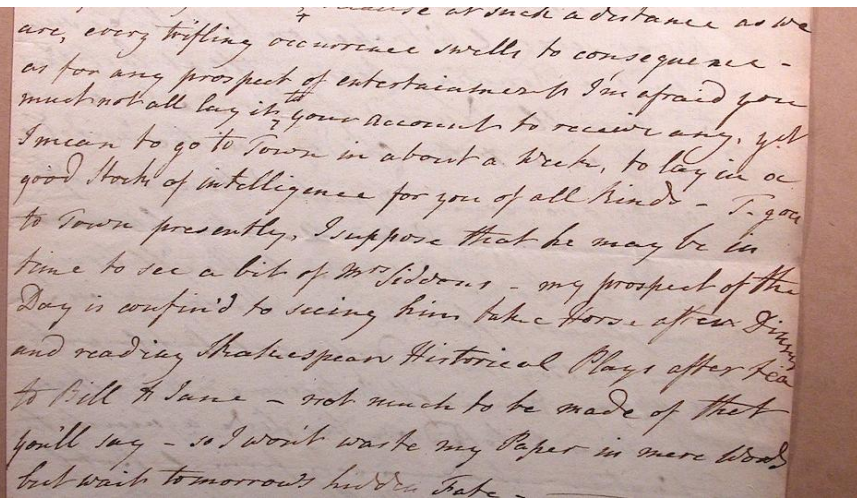 because at such a distance as we
are, every trifling occurrence swells to consequence -
as for any prospect of entertainment I'm afraid you
must not all lay it to your account to receive any, yet
I mean to go to Town in about a Week, to lay in a
good Stock of intelligence for you of all Kinds - T. goes
to Town presently, I suppose that he may be in
time to see a bit of Mrs Siddons - my prospect of the
Day is confin'd to seeing him take Horse after Dinner
and reading Shakespears Historical Plays after tea
to Bill & Jane - not much to be made of that
you'll say - so I won't waste my Paper in mere Words
but wait tomorrow's hidden Fate -